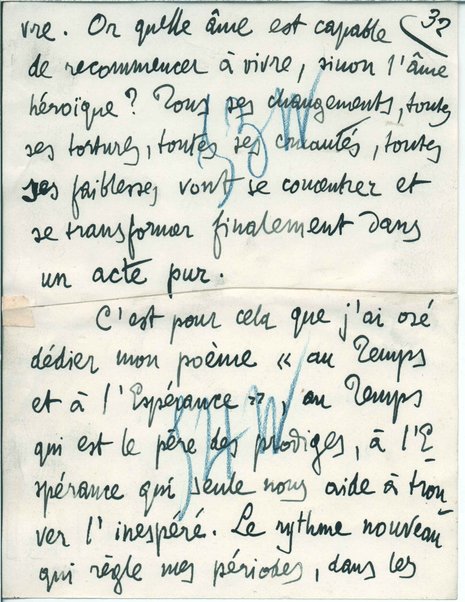 32
vre. Or quelle âme est capable
de recommencer à vivre, sinon l'âme
héroïque? Tous ses changements, toutes
ses tortures, toutes ses cruautés, toutes
ses faiblesses vont se concentrer et
se transformer finalement dans
un acte pur.
C'est pour cela que j'ai osé
dédier mon poème « au Temps
et à l'Espérance », au Temps
qui est le père des prodiges, à l'E
spérance qui seule nous aide à trou
ver l'inespéré. Le rythme nouveau
qui règle mes périodes, dans les